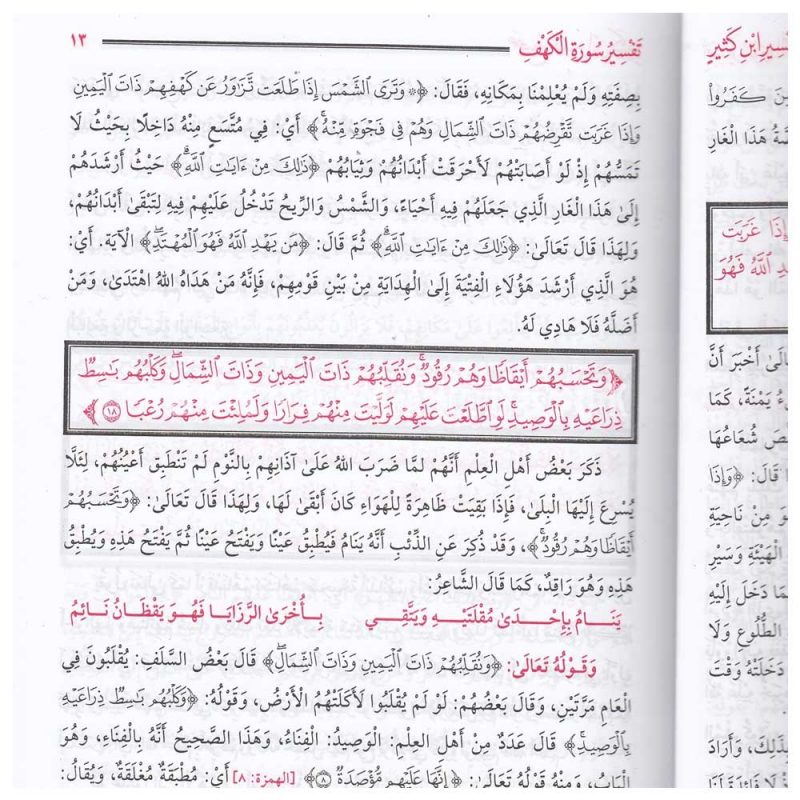 تَفْسِيرُ سُورَةِ الْكَهْفِ ١٣
بِصِفَتِهِ وَلَمْ يُعْلِمْنَا بِمَكَانِهِ، فَقَالَ: ﴿۞ وَتَرَى الشَّمْسَ إِذَا طَلَعَت تَّزَاوَرُ عَن كَهْفِهِمْ ذَاتَ الْيَمِينِ
وَإِذَا غَرَبَت تَّقْرِضُهُمْ ذَاتَ الشِّمَالِ وَهُمْ فِي فَجْوَةٍ مِّنْهُ﴾ أَيْ: فِي مُتَّسَعٍ مِنْهُ دَاخِلًا بِحَيْثُ لَا
تَمَسُّهُمْ إِذْ لَوْ أَصَابَتْهُمْ لَأَحْرَقَتْ أَبْدَانُهُمْ وَثِيَابُهُمْ ﴿ذَٰلِكَ مِنْ ءَايَاتِ اللَّهِ﴾ حَيْثُ أَرْشَدَهُمْ
إِلَىٰ هَذَا الْغَارِ الَّذِي جَعَلَهُمْ فِيهِ أَحْيَاءً، وَالشَّمْسُ وَالرِّيحُ تَدْخُلُ عَلَيْهِمْ فِيهِ لِتَبْقَىٰ أَبْدَانُهُمْ،
وَلِهَذَا قَالَ تَعَالَىٰ: ﴿ذَٰلِكَ مِنْ ءَايَاتِ اللَّهِ﴾ ثُمَّ قَالَ: ﴿مَن يَهْدِ اللَّهُ فَهُوَ الْمُهْتَدِ﴾ الْآيَةَ. أَيْ:
هُوَ الَّذِي أَرْشَدَ هَؤُلَاءِ الْفِتْيَةَ إِلَىٰ الْهِدَايَةِ مِنْ بَيْنِ قَوْمِهِمْ، فَإِنَّهُ مَنْ هَدَاهُ اللهُ اهْتَدَىٰ، وَمَنْ
أَضَلَّهُ فَلَا هَادِيَ لَهُ.
﴿وَتَحْسَبُهُمْ أَيْقَاظًا وَهُمْ رُقُودٌ وَنُقَلِّبُهُمْ ذَاتَ الْيَمِينِ وَذَاتَ الشِّمَالِ وَكَلْبُهُم بَاسِطٌ
ذِرَاعَيْهِ بِالْوَصِيدِ لَوِ اطَّلَعْتَ عَلَيْهِمْ لَوَلَّيْتَ مِنْهُمْ فِرَارًا وَلَمُلِئْتَ مِنْهُمْ رُعْبًا ۝١٨﴾
ذَكَرَ بَعْضُ أَهْلِ الْعِلْمِ أَنَّهُمْ لَمَّا ضَرَبَ اللهُ عَلَىٰ آذَانِهِمْ بِالنَّوْمِ لَمْ تَنْطَبِقْ أَعْيُنُهُمْ، لِئَلَّا
يُسْرِعَ إِلَيْهَا الْبِلَىٰ، فَإِذَا بَقِيَتْ ظَاهِرَةً لِلْهَوَاءِ كَانَ أَبْقَىٰ لَهَا، وَلِهَذَا قَالَ تَعَالَىٰ: ﴿وَتَحْسَبُهُمْ
أَيْقَاظًا وَهُمْ رُقُودٌ﴾، وَقَدْ ذُكِرَ عَنِ الذِّئْبِ أَنَّهُ يَنَامُ فَيُطْبِقُ عَيْنًا وَيَفْتَحُ عَيْنًا ثُمَّ يَفْتَحُ هَذِهِ وَيُطْبِقُ
هَذِهِ وَهُوَ رَاقِدٌ، كَمَا قَالَ الشَّاعِرُ:
يَنَامُ بِإِحْدَىٰ مُقْلَتَيْهِ وَيَتَّقِي بِأُخْرَىٰ الرَّزَايَا فَهُوَ يَقْظَانُ نَائِمُ
وَقَوْلُهُ تَعَالَىٰ: ﴿وَنُقَلِّبُهُمْ ذَاتَ الْيَمِينِ وَذَاتَ الشِّمَالِ﴾ قَالَ بَعْضُ السَّلَفِ: يُقْلَبُونَ فِي
الْعَامِ مَرَّتَيْنِ، وَقَالَ بَعْضُهُمْ: لَوْ لَمْ يُقْلَبُوا لَأَكَلَتْهُمُ الْأَرْضُ، وَقَوْلُهُ: ﴿وَكَلْبُهُم بَاسِطٌ ذِرَاعَيْهِ
بِالْوَصِيدِ﴾ قَالَ عَدَدٌ مِنْ أَهْلِ الْعِلْمِ: الْوَصِيدُ: الْفِنَاءُ، وَهَذَا الصَّحِيحُ أَنَّهُ بِالْفِنَاءِ، وَهُوَ
الْبَابُ، وَمِنْهُ قَوْلُهُ تَعَالَىٰ: ﴿إِنَّهَا عَلَيْهِم مُّؤْصَدَةٌ ۝٨﴾ [الهمزة: ٨] أَيْ: مُطْبَقَةٌ مُغْلَقَةٌ، وَيُقَالُ:
ابْنِ كَثِيرٍ
كَفَرُوا
هَذَا الْغَارِ
إِذَا غَرَبَت
اللَّهُ فَهُوَ
أَخْبَرَ أَنَّ
يَمْنَةً، كَمَا
شُعَاعُهَا
قَالَ: ﴿وَإِذَا
مِنْ نَاحِيَةِ
الْهَيْئَةِ وَسَيْرِ
دَخَلَ إِلَيْهِ
الطُّلُوعِ وَلَا
دَخَلَتْهُ وَقْتَ
وَأَرَادَ
لَا فَائِدَةَ لَنَا